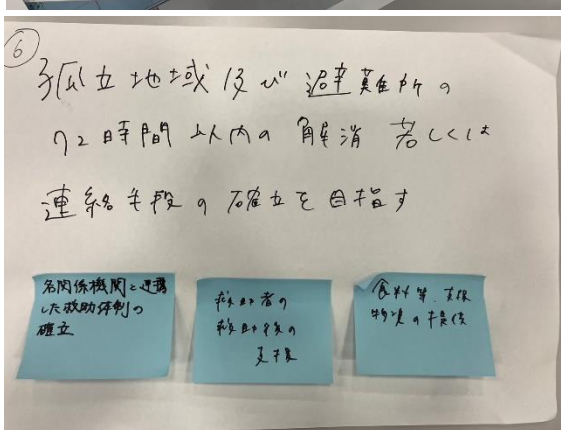 ⑥
孤立地域及び避難所の
72時間以内の解消若しくは
連絡手段の確立を目指す
各関係機関と連携
した救助体制の
確立
救助者の
救助後の
支援
食料等、支援
物資の提供